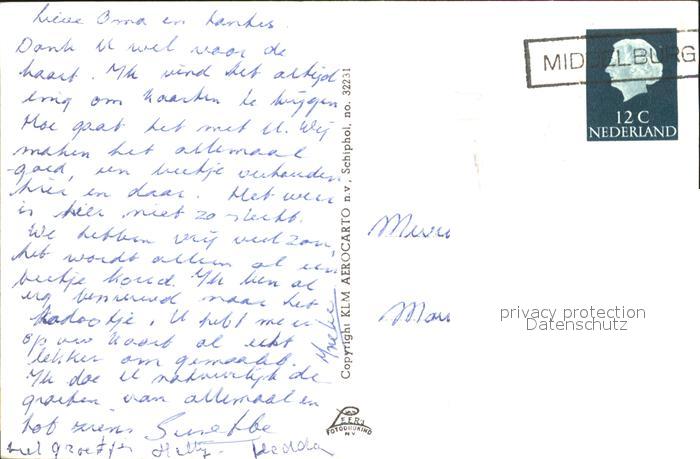 Lieve Oma en tantes.
Dank U wel voor de
kaart. Ik vind het altijd
enig om kaarten te krijgen
Hoe gaat het met U. Wij
maken het allemaal
goed, een beetje verkouden
hier en daar. Het weer
is hier niet zo slecht.
We hebben vrij veel zon,
het wordt alleen al een
beetje koud. Ik ben al
erg benieuwd naar het
kadootje. U hebt me er
op uw kaart al echt
lekker om gemaakt.
Ik doe U natuurlijk de
groeten van allemaal en
tot ziens
met groetjes Hetty. Hedda
Copyright KLM AEROCARTO n.v., Schiphol, no. 32231
FOTODRUKIND
N.V.
MIDDELBURG
12 C
NEDERLAND
privacy protection
Datenschutz